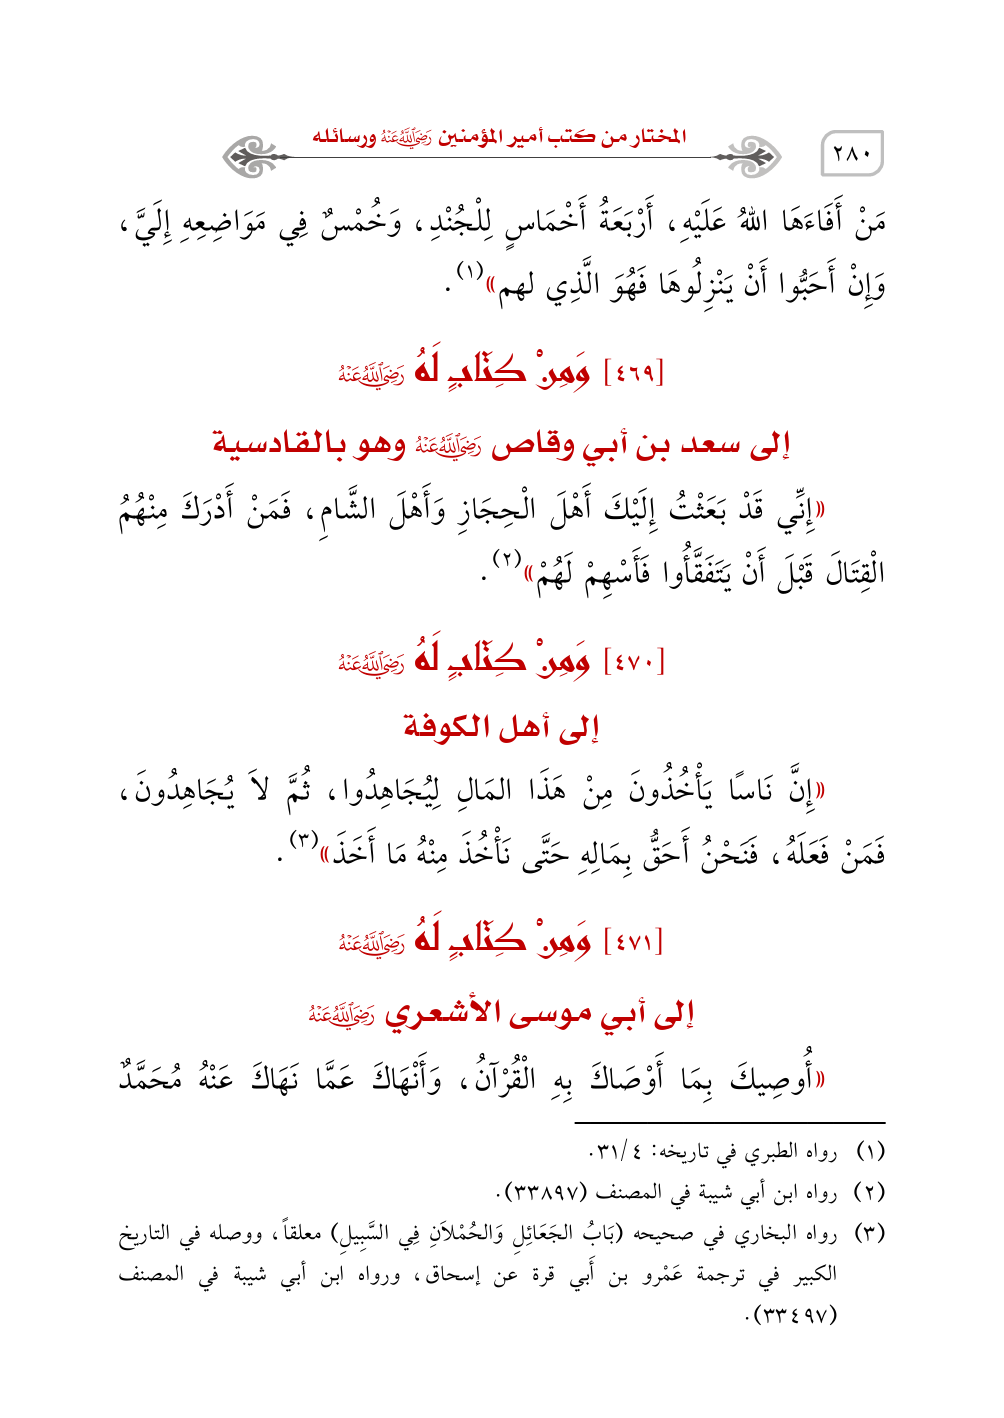 ٢٨٠
المختار من كتب أمير المؤمنين رَضِيَاللَّهُعَنْهُ ورسائله
مَنْ أَفَاءَهَا اللهُ عَلَيْهِ، أَرْبَعَةُ أَخْمَاسٍ لِلْجُنْدِ، وَخُمْسٌ فِي مَوَاضِعِهِ إِلَيَّ،
وَإِنْ أَحَبُّوا أَنْ يَنْزِلُوهَا فَهُوَ الَّذِي لهم»(١).
[٤٦٩] وَمِنْ كِتَابٍ لَهُ رَضِيَاللَّهُعَنْهُ
إلى سعد بن أبي وقاص رَضِيَاللَّهُعَنْهُ وهو بالقادسية
«إِنِّي قَدْ بَعَثْتُ إِلَيْكَ أَهْلَ الْحِجَازِ وَأَهْلَ الشَّامِ، فَمَنْ أَدْرَكَ مِنْهُمُ
الْقِتَالَ قَبْلَ أَنْ يَتَفَقَّأُوا فَأَسْهِمْ لَهُمْ»(٢).
[٤٧٠] وَمِنْ كِتَابٍ لَهُ رَضِيَاللَّهُعَنْهُ
إلى أهل الكوفة
«إِنَّ نَاسًا يَأْخُذُونَ مِنْ هَذَا المَالِ لِيُجَاهِدُوا، ثُمَّ لاَ يُجَاهِدُونَ،
فَمَنْ فَعَلَهُ، فَنَحْنُ أَحَقُّ بِمَالِهِ حَتَّى نَأْخُذَ مِنْهُ مَا أَخَذَ»(٣).
[٤٧١] وَمِنْ كِتَابٍ لَهُ رَضِيَاللَّهُعَنْهُ
إلى أبي موسى الأشعري رَضِيَاللَّهُعَنْهُ
«أُوصِيكَ بِمَا أَوْصَاكَ بِهِ الْقُرْآنُ، وَأَنْهَاكَ عَمَّا نَهَاكَ عَنْهُ مُحَمَّدٌ
(١) رواه الطبري في تاريخه: ٤/ ٣١.
(٢) رواه ابن أبي شيبة في المصنف (٣٣٨٩٧).
(٣) رواه البخاري في صحيحه (بَابُ الجَعَائِلِ وَالحُمْلاَنِ فِي السَّبِيلِ) معلقاً، ووصله في التاريخ
الكبير في ترجمة عَمْرو بن أَبي قرة عن إسحاق، ورواه ابن أبي شيبة في المصنف
(٣٣٤٩٧).